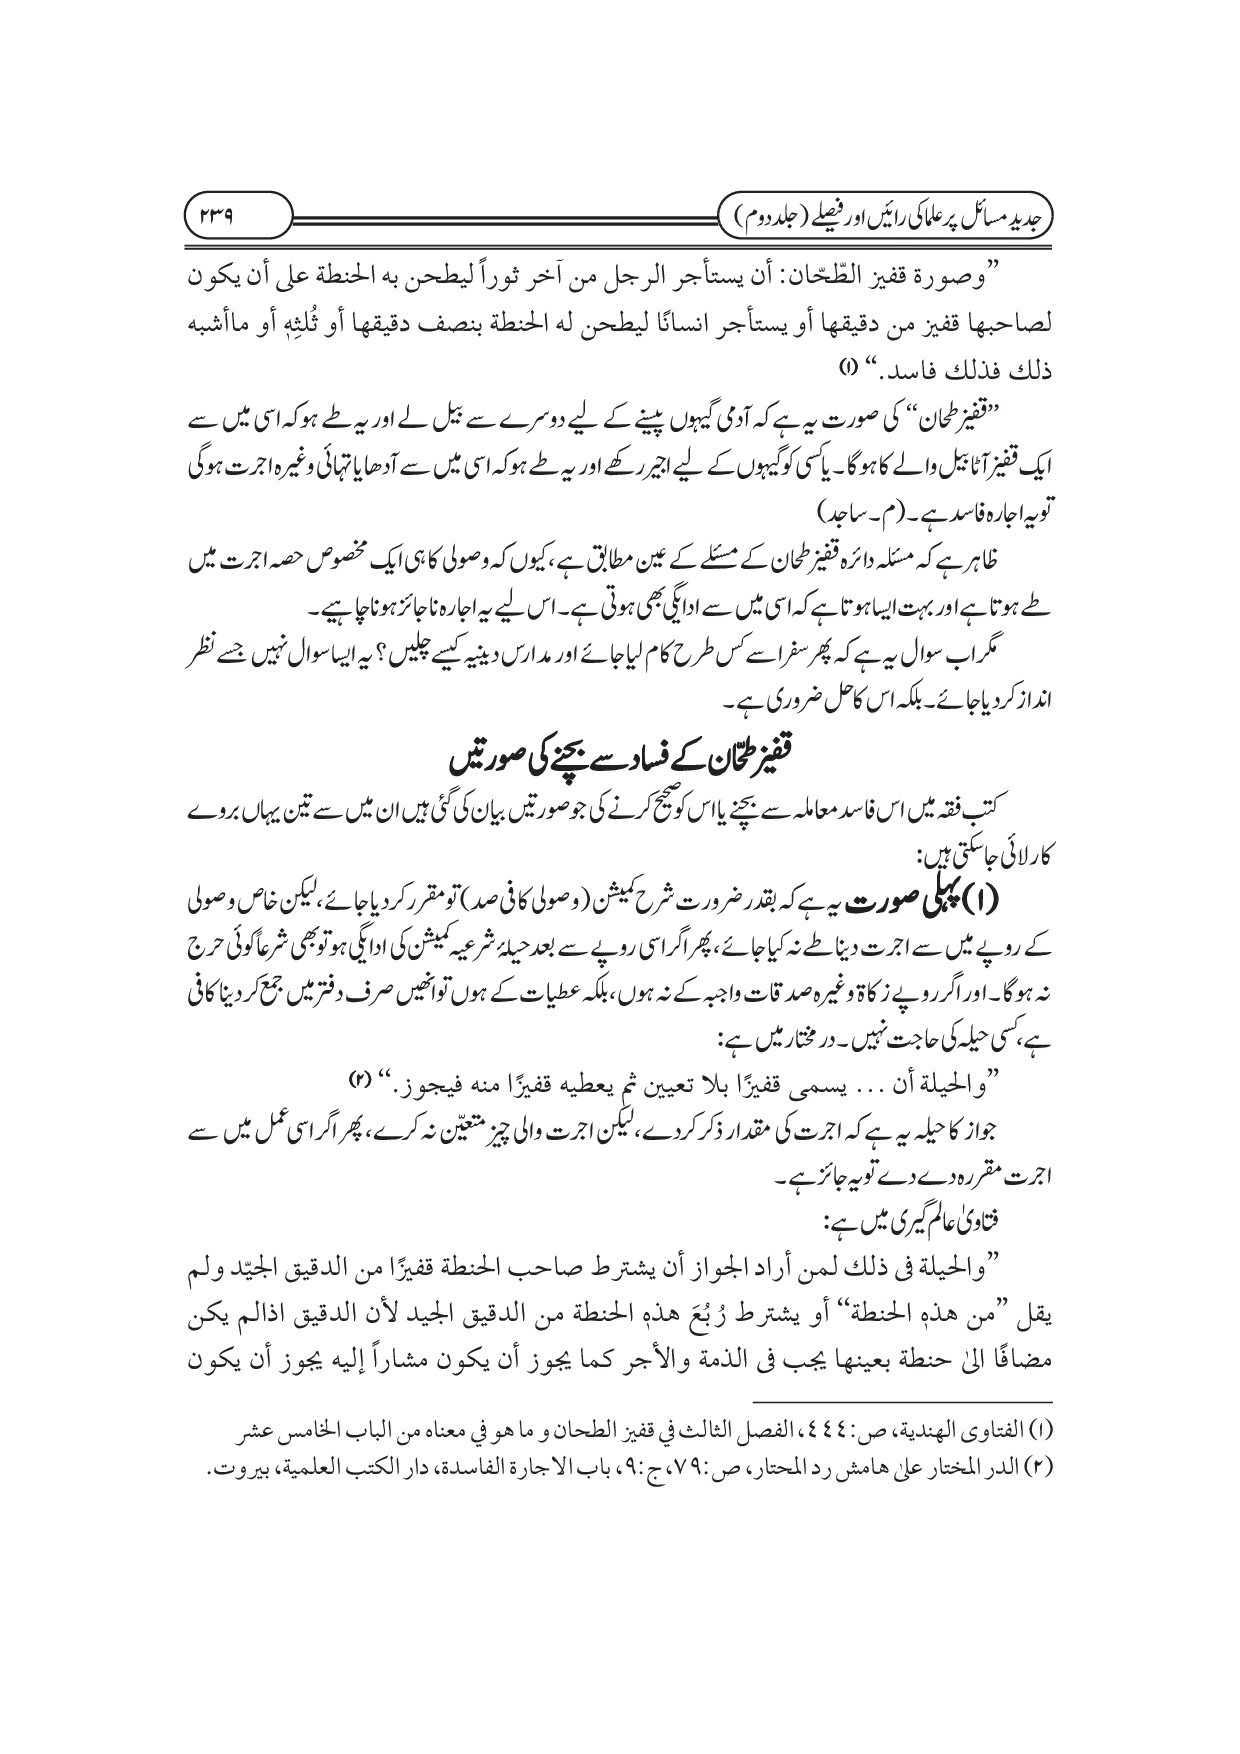 جدید مسائل پر علما کی رائیں اور فیصلے (جلد دوم)
۲۳۹
”وصورة قفيز الطّحّان: أن يستأجر الرجل من آخر ثوراً ليطحن به الحنطة على أن يكون
لصاحبها قفيز من دقيقها أو يستأجر انسانًا ليطحن له الحنطة بنصف دقيقها أو ثُلثِهٖ أو ماأشبه
ذلك فذلك فاسد.“ (۱)
”قفیز طحان“ کی صورت یہ ہے کہ آدمی گیہوں پیسنے کے لیے دوسرے سے بیل لے اور یہ طے ہو کہ اسی میں سے
ایک قفیز آٹا بیل والے کا ہوگا۔ یا کسی کو گیہوں کے لیے اجیر رکھے اور یہ طے ہو کہ اسی میں سے آدھا یا تہائی وغیرہ اجرت ہوگی
تو یہ اجارہ فاسد ہے۔ (م۔ ساجد)
ظاہر ہے کہ مسئلہ دائرہ قفیز طحان کے مسئلے کے عین مطابق ہے، کیوں کہ وصولی کا ہی ایک مخصوص حصہ اجرت میں
طے ہوتا ہے اور بہت ایسا ہوتا ہے کہ اسی میں سے ادایگی بھی ہوتی ہے۔ اس لیے یہ اجارہ ناجائز ہونا چاہیے۔
مگر اب سوال یہ ہے کہ پھر سفرا سے کس طرح کام لیا جائے اور مدارس دینیہ کیسے چلیں؟ یہ ایسا سوال نہیں جسے نظر
انداز کر دیا جائے۔ بلکہ اس کا حل ضروری ہے۔
قفیز طحّان کے فساد سے بچنے کی صورتیں
کتب فقہ میں اس فاسد معاملہ سے بچنے یا اس کو صحیح کرنے کی جو صورتیں بیان کی گئی ہیں ان میں سے تین یہاں بروے
کار لائی جا سکتی ہیں:
(۱) پہلی صورت یہ ہے کہ بقدر ضرورت شرح کمیشن (وصولی کا فی صد) تو مقرر کر دیا جائے، لیکن خاص وصولی
کے روپے میں سے اجرت دینا طے نہ کیا جائے، پھر اگر اسی روپے سے بعد حیلۂ شرعیہ کمیشن کی ادایگی ہو تو بھی شرعاً کوئی حرج
نہ ہوگا۔ اور اگر روپے زکاة وغیرہ صدقات واجبہ کے نہ ہوں، بلکہ عطیات کے ہوں تو انھیں صرف دفتر میں جمع کر دینا کافی
ہے، کسی حیلہ کی حاجت نہیں۔ در مختار میں ہے:
”والحيلة أن ... يسمى قفيزًا بلا تعيين ثم يعطيه قفيزًا منه فيجوز.“ (۲)
جواز کا حیلہ یہ ہے کہ اجرت کی مقدار ذکر کر دے، لیکن اجرت والی چیز متعیّن نہ کرے، پھر اگر اسی عمل میں سے
اجرت مقررہ دے دے تو یہ جائز ہے۔
فتاویٰ عالم گیری میں ہے:
”والحيلة فى ذلك لمن أراد الجواز أن يشترط صاحب الحنطة قفيزًا من الدقيق الجيّد ولم
يقل ”من هذهٖ الحنطة“ أو يشترط رُبُعَ هذهٖ الحنطة من الدقيق الجيد لأن الدقيق اذالم يكن
مضافًا الىٰ حنطة بعينها يجب فى الذمة والأجر كما يجوز أن يكون مشاراً إليه يجوز أن يكون
(۱) الفتاوى الهندية، ص:٤٤٤، الفصل الثالث في قفيز الطحان و ما هو في معناه من الباب الخامس عشر
(۲) الدر المختار علىٰ هامش رد المحتار، ص:٧٩، ج:٩، باب الاجارة الفاسدة، دار الكتب العلمية، بيروت.